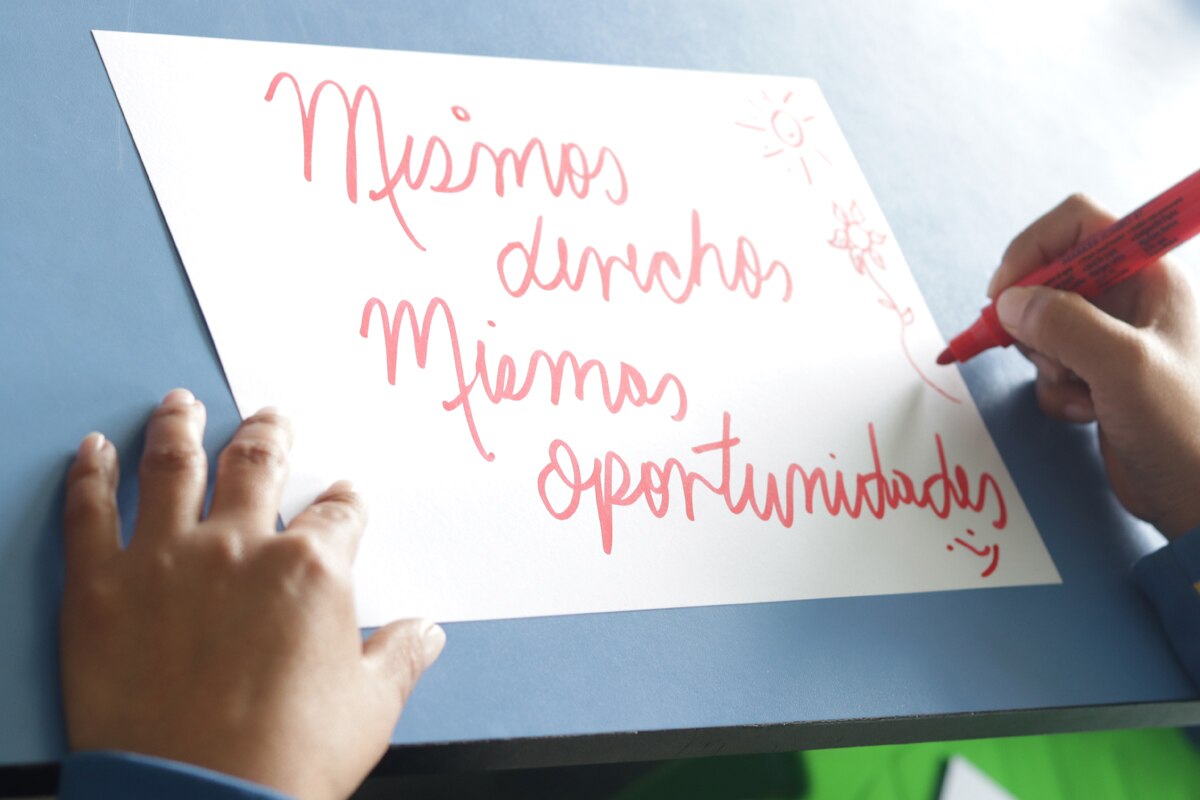 Mismos
derechos
Mismas
oportunidades